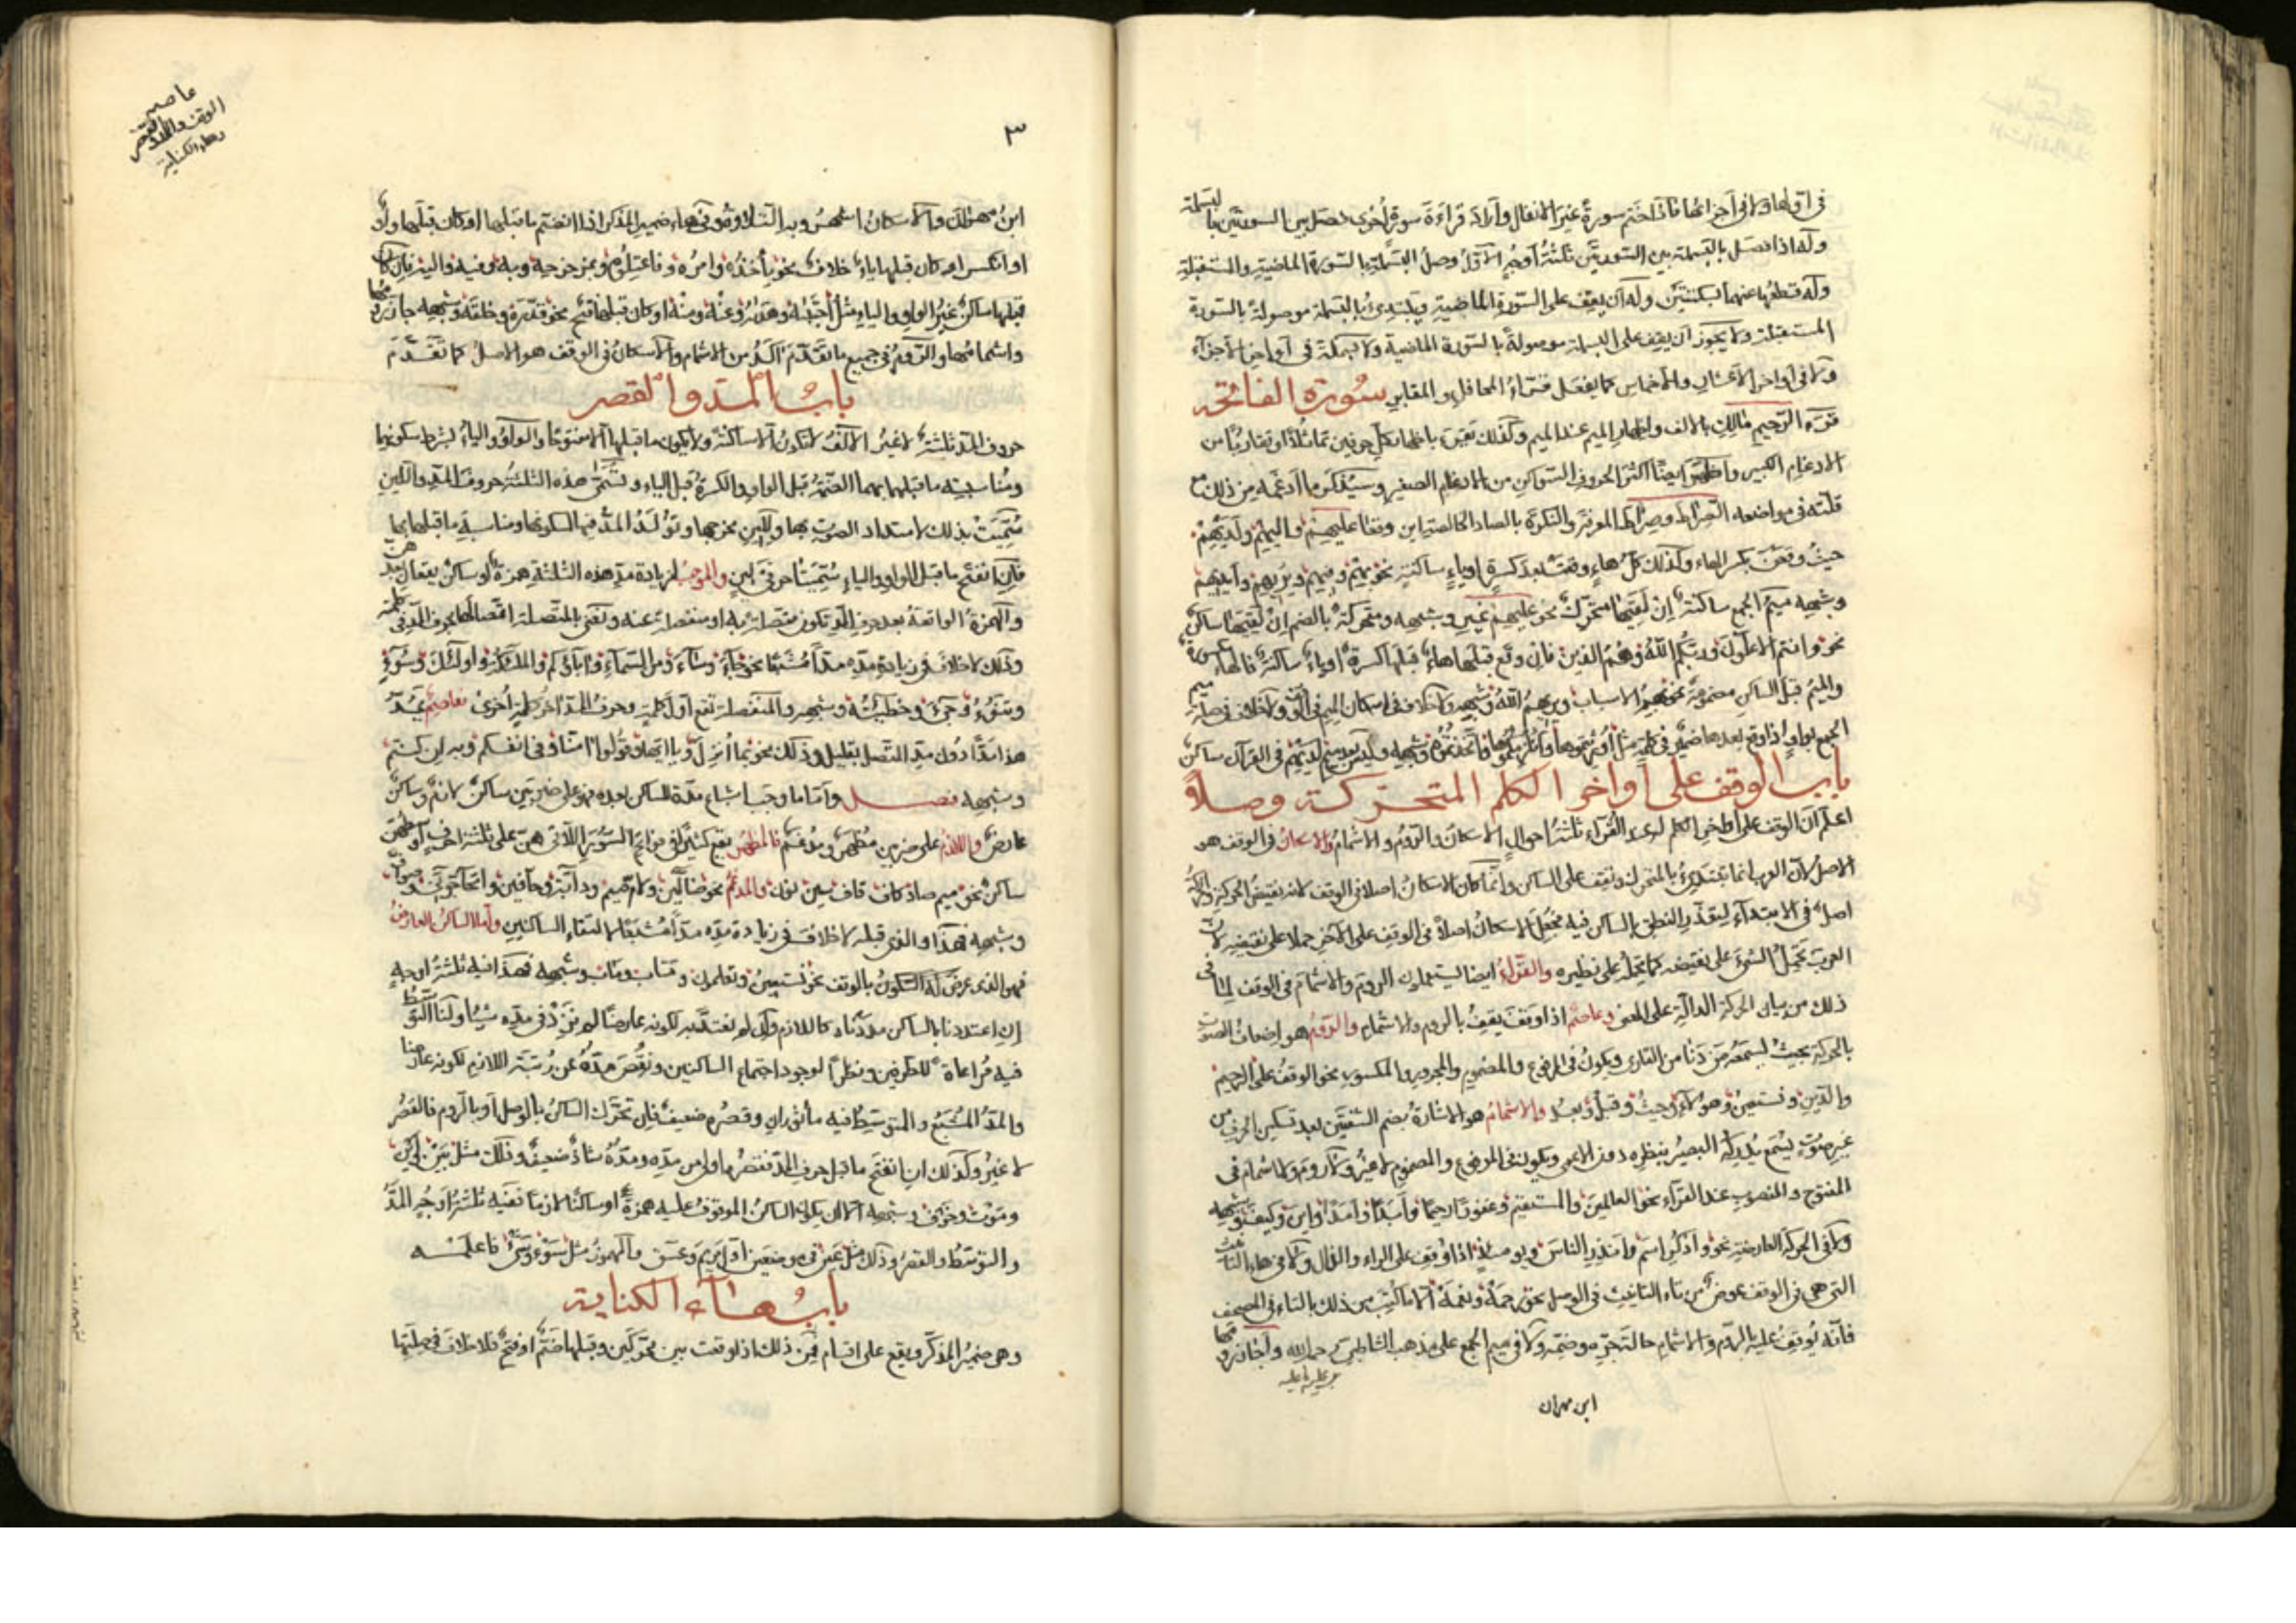 في اوّلها ولا في اجزائها فاذا ختم سورةً غيرَ الانفال وأراد قراءةَ سورةٍ أُخرى فصل بين السورتين بالبسملة
وله اذا فصل بالبسملة بين السورتين ثلثةُ أوجهٍ الاوّلُ وصلُ البسملةِ بالسورة الماضية والمستقبلة
وله قطعُها عنهما بسكتتين وله ان يقف على السورة الماضية ويبتدئ بالبسملة موصولةً بالسورة
المستقبلة ولا يجوز ان يقف على البسملة موصولةً بالسورة الماضية ولا بسملة في أواخر الأجزاء
ولا في اواخر الاعشار والاخماس كما يفعل قرّاءُ المحافل والمقابر سُورة الفاتحة
الرّحيم مالك بالالف واظهار الميم عند الميم وكذلك يقرأ باظهار كلّ حرفين تماثلا او تقاربا من
الادغام الكبير واظهر ايضًا اكثر الحروف السواكن من الادغام الصغير وسيُذكر ما ادغمه من ذلك مع
في مواضعه الصراط وصراط المعرفة والنكرة بالصاد الخالصة اين وقعا عليهم واليهم ولديهم
حيثُ وقعن بكسر الهاء وكذلك كلّ هاءٍ وقعت بعد كسرةٍ او ياءٍ ساكنةٍ نحو بهم وفيهم ويزكيهم وأيديهم
وشبهه ميمُ الجمع ساكنةٌ إن لقيها متحركٌ نحو عليهم غير وشبهه ومتحركةٌ بالضم إن لقيها ساكنٌ
نحو وانتم الاعلون وربّكم اللهُ وهُمُ الذين فان وقع قبلها هاءٌ قبلها كسرةٌ أو ياءٌ ساكنةٌ فالهاء مكسورةٌ
والميمُ قبل الساكن مضمومةٌ نحو بهمُ الاسباب ويريهمُ اللهُ وشبهه ولا خلاف في اسكان الميم في الوقف ولا خلاف في صلة ميم
الجمع بواوٍ اذا وقع بعدها ضميرٌ في كلمةٍ مثل أورثتموها وأنلزمكموها واتخذتموه وشبهه وليس بعد ميم لديهم في القرآن ساكن
باب الوقف على أواخر الكلم المتحرّكة وصلاً
اعلم أن الوقف على أواخر الكلم لدى القرّاء ثلثةُ احوالٍ الاسكانُ والرّومُ والاشمامُ والاسكانُ في الوقف هو
الاصل لأن العرب انما تبتدئُ بالمتحرك وتقف على الساكن وانّما كان الاسكانُ اصلا في الوقف لانه نقيضُ الحركة والحركةُ
اصلٌ في الابتداء ليتعذّر النطق بالساكن فيه فجُعل الاسكانُ اصلاً في الوقف على الآخر حملا على نقيضه لان
العرب تحمل الشئ على نقيضه كما تحمله على نظيره والقرّاءُ ايضا يستعملون الروم والاشمام في الوقف لما في
ذلك من بيان الحركة الدالّة على المعنى وعاصم اذا وقف يقف بالروم والاشمام والرّومُ هو اضعاف الصوت
بالحركة بحيثُ يسمعه من دنا من القارئ ويكون في المرفوع والمضموم والمجرور والمكسور نحو الوقف على الرحيم
والدّين ونستعين وهؤلاء وحيثُ وقبلُ وبعدُ والاشمامُ هو الاشارةُ بضم الشفتين بعد تسكين الحرف من
غير صوتٍ يُسمع يُدركه البصيرُ بنظره دون الاعمى ويكون في المرفوع والمضموم لا غيرُ ولا روم ولا اشمام في
المفتوح والمنصوب عند القرّاء نحو العالمين والمستقيم وغفورًا رحيمًا وأبدًا وأمدًا وأين وكيف وشبهه
ولا في الحركة العارضة نحو واذكر اسم وأنذر الناسَ ويومئذٍ اذا وُقف على الراء والذال ولا في هاء التأنيث
التي هي في الوقف عوضٌ من تاء التأنيث في الوصل نحو رحمة ونعمة الّا ما كُتب من ذلك بالتاء في المصحف
فانّه يُوقف عليه بالروم والاشمام حالة جرّه وضمّه ولا في ميم الجمع على مذهب الشاطبي رحمه الله وأجاز رومها
ابن مهران
عاصم
الوقف والمد والقصر
وهاء الكناية
٣
ابنُ مهران والاسكانُ اشهرُ وبه آخذ في هاء ضمير المذكر اذا انضمّ ما قبلها او كان قبلها واوٌ
او انكسر او كان قبلها ياءٌ خلافٌ نحو يأخذُه وامرُه وفاعتلوه وبمزحزحه وبه وفيه واليه فإن كان
قبلها ساكنٌ غيرُ الواو والياء مثل أجتباه وهداه وعنْهُ ومنْهُ او كان قبلها فتحٌ نحو قدّره وخلقه وشبهه جاز رومها
واشمامها والرّوم في جميع ما تقدّم آكد من الاشمام والاسكانُ في الوقف هو الاصلُ كما تقدّم
بابُ المدّ والقصر
حروف المدّ ثلثةٌ لا غيرُ الالفُ لا تكون الّا ساكنةً ولا يكون ما قبلها الّا مفتوحًا والواوُ والياءُ بشرط سكونهما
ومناسبة ما قبلهما بهما الضمّة قبل الواو والكسرةُ قبل الياء وتُسمّى هذه الثلثةُ حروف المدّ واللين
سُمّيت بذلك لامتداد الصوت بها ولين مخرجها وتولّد المدّ فيها لسكونها ومناسبة ما قبلها بها
فإن انفتح ما قبل الواو والياءِ سُمّيتا حرفَيْ لينٍ والموجبُ لزيادة مدّ هذه الثلثة همزةٌ أو ساكنٌ يقعان بعدهنّ
والهمزةُ الواقعةُ بعد حرف المدّ تكون متّصلة به او منفصلة عنه ونعني بالمتّصلة اتّصالها بحرف المدّ في كلمة
وذلك لا خلاف في زيادة مدّه مدًّا مُشبعًا نحو جاءَ وشاءَ ومن السّماءِ وآباؤكم والملئكة وأولئك وسوءٍ
وتنوءُ وجئ وخطيئته وشبهه والمنفصلة تقع أوّل كلمةٍ وحرفُ المدّ آخرَ كلمةٍ أُخرى فعاصمٌ يمُدّ
هذا مدًّا دون مدّ المتّصل بقليلٍ وذلك نحو بما أُنزل ويا أيّها وقولوا آمنّا وفي انفسكم وبه إن كنتم
وشبهه فصل وأمّا ما وجب اشباع مدّه للساكن بعده فهو على ضربين ساكنٌ لازمٌ وساكنٌ
عارضٌ واللازمُ على ضربين مُظهرٌ ومُدغمٌ فالمظهر يقع كثيرًا في فواتح السور اللاتي هي على ثلثة احرفٍ أوسطهنّ
ساكنٌ نحو ميم صاد كاف قاف سين نون والمدغم نحو ضالّين ولام ميم ودابّة وحافّين وأتحاجّونّي وصوافّ
وشبهه فهذا والذي قبله لا خلاف في زيادة مدّه مدًّا مُشبعًا لالتقاء الساكنين وأما الساكنُ العارضُ
فهو الذي عرض له السكونُ بالوقف نحو نستعين وتعلمون ومتاب ومآب وشبهه فهذا فيه ثلثةُ أوجهٍ
إن اعتددنا بالساكن مددناه كاللازم وإن لم نعتدّ به لكونه عارضًا لم نزد في مدّه شيئًا ولنا التوسّط
فيه مُراعاةً للطرفين ونظرًا لوجود اجتماع الساكنين ونقص مدّه عن رُتبة اللازم لكونه عارضًا
والمدّ المُشبع والمتوسّط فيه مأثوران وقصرُه ضعيفٌ فإن تحرّك الساكنُ بالوصل أو بالروم فالقصرُ
لا غيرُ وكذلك ان انفتح ما قبل حرف المدّ فقصرُه اولى من مدّه ومدّه شاذٌّ ضعيفٌ وذلك مثل بين وأين
وموت وخوف وشبهه الّا ان يكون الساكنُ الموقوفُ عليه همزةً اوساكنًا لازمًا ففيه ثلثةُ أوجُهٍ المدُّ
والتوسّط والقصرُ وذلك مثل عين في موضعين اوّل مريم وعسق والمهموزُ مثل سَوْء وشيْء فاعلمه
بابُ هاء الكناية
وهي ضميرُ المذكّر ويقع على اقسام فمن ذلك اذا وقعت بين محرّكين وقبلها ضمٌّ او فتحٌ فلا خلاف في صلتها